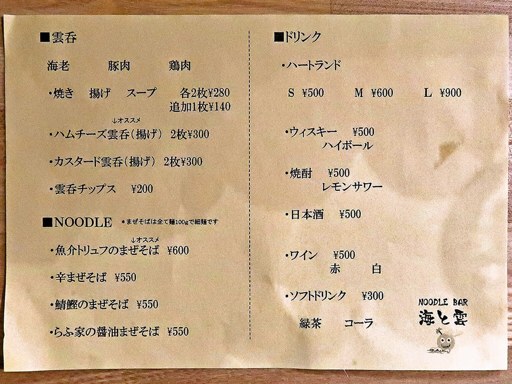 ■雲呑
海老 豚肉 鶏肉
・焼き 揚げ スープ 各2枚¥280
追加1枚¥140
↓オススメ
・ハムチーズ雲呑(揚げ) 2枚¥300
・カスタード雲呑(揚げ) 2枚¥300
・雲呑チップス ¥200
■NOODLE *まぜそばは全て麺100gで細麺です
↓オススメ
・魚介トリュフのまぜそば ¥600
・辛まぜそば ¥550
・鯖鰹のまぜそば ¥550
・らふ家の醤油まぜそば ¥550
■ドリンク
・ハートランド
S ¥500 M ¥600 L ¥900
・ウィスキー ¥500
ハイボール
・焼酎 ¥500
レモンサワー
・日本酒 ¥500
・ワイン ¥500
赤 白
・ソフトドリンク ¥300
緑茶 コーラ
NOODLE BAR
海と雲